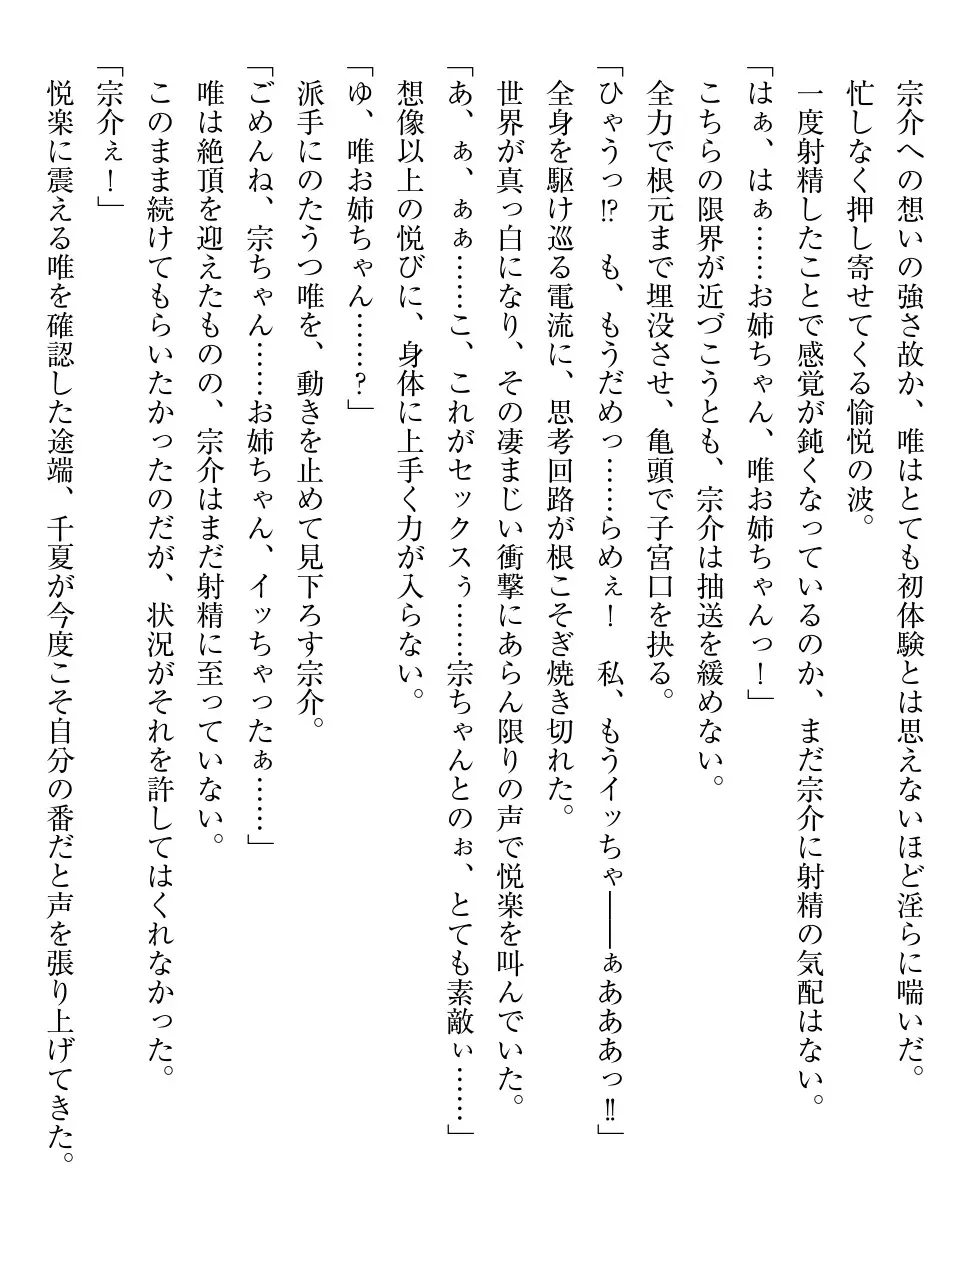 宗介への想いの強さ故か、唯はとても初体験とは思えないほど淫らに喘いだ。
忙しなく押し寄せてくる愉悦の波。
一度射精したことで感覚が鈍くなっているのか、まだ宗介に射精の気配はない。
「はぁ、はぁ……お姉ちゃん、唯お姉ちゃんっ！」
こちらの限界が近づこうとも、宗介は抽送を緩めない。
全力で根元まで埋没させ、亀頭で子宮口を抉る。
「ひゃうっ!?　も、もうだめっ……らめぇ！　私、もうイッちゃ――ぁあああっ!!」
全身を駆け巡る電流に、思考回路が根こそぎ焼き切れた。
世界が真っ白になり、その凄まじい衝撃にあらん限りの声で悦楽を叫んでいた。
「あ、ぁ、ぁぁ……こ、これがセックスぅ……宗ちゃんとのぉ、とても素敵ぃ……」
想像以上の悦びに、身体に上手く力が入らない。
「ゆ、唯お姉ちゃん……？」
派手にのたうつ唯を、動きを止めて見下ろす宗介。
「ごめんね、宗ちゃん……お姉ちゃん、イッちゃったぁ……」
唯は絶頂を迎えたものの、宗介はまだ射精に至っていない。
このまま続けてもらいたかったのだが、状況がそれを許してはくれなかった。
「宗介ぇ！」
悦楽に震える唯を確認した途端、千夏が今度こそ自分の番だと声を張り上げてきた。